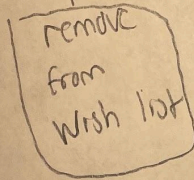 remove
from
Wish list